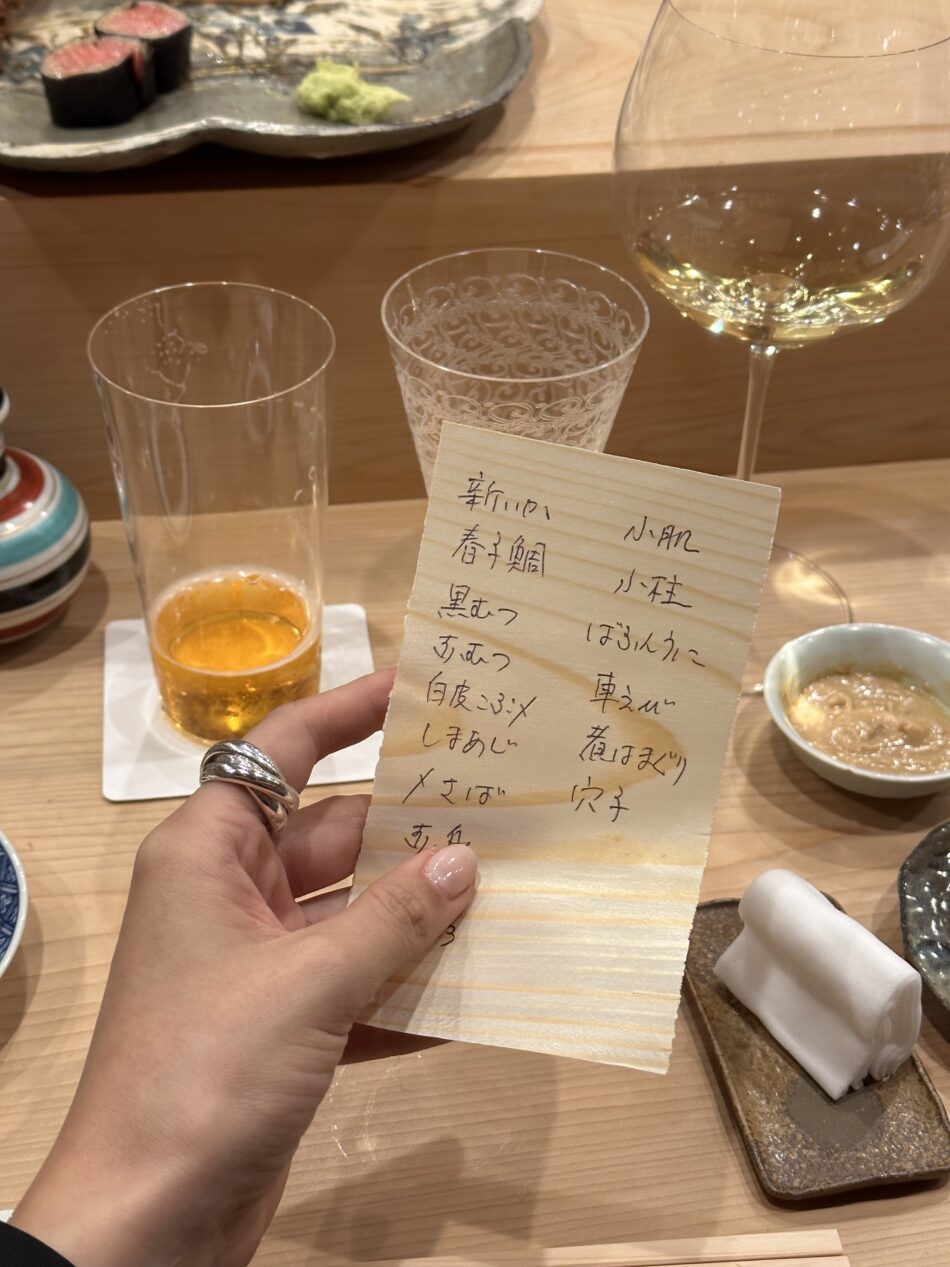 新いか
春子鯛
黒むつ
赤むつ
白皮こぶ〆
しまあじ
〆さば
赤身
ろ
小肌
小柱
ばふんうに
車えび
煮はまぐり
穴子